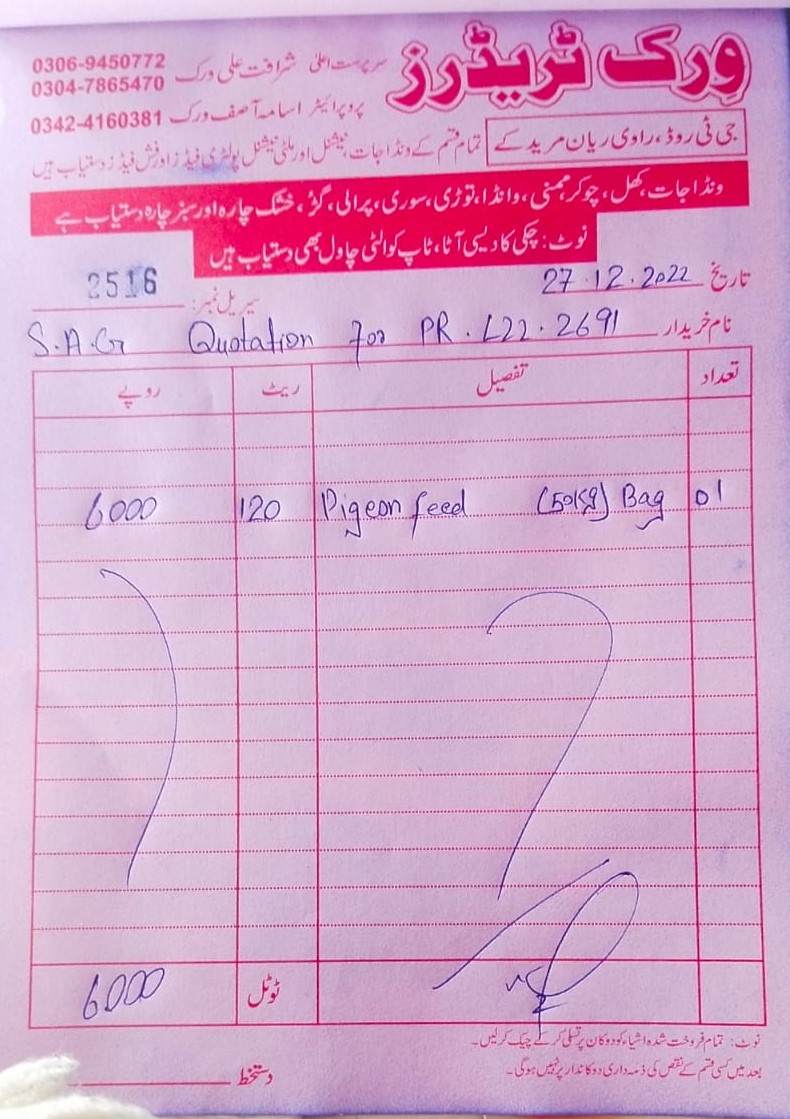 ورک ٹریڈرز
سرپرست اعلیٰ شرافت علی ورک 0306-9450772
0304-7865470
پروپرائیٹر اسامہ آصف ورک 0342-4160381
جی ٹی روڈ، راوی ریان مریدکے
تمام قسم کے ونڈا جات، نیشنل اور ملٹی نیشنل پولٹری فیڈز اور فش فیڈز دستیاب ہیں
ونڈا جات، کھل، چوکر، وانڈا، توڑی، سوری، پرالی، گڑ، خشک چارہ اور سبز چارہ دستیاب ہے
نوٹ: چکی کا دیسی آٹا، ٹاپ کوالٹی چاول بھی دستیاب ہیں
تاریخ 27.12.2022
سیریل نمبر: 2516
نام خریدار S.A.G Quotation for PR.L22.2691
تعداد تفصیل ریٹ روپے
01 Pigeon feed (50kg) Bag 120 6000
ٹوٹل 6000
نوٹ: تمام فروخت شدہ اشیاء کو دوکان پر تسلی کر کے چیک کر لیں۔
بعد میں کسی قسم کے نقص کی ذمہ داری دوکاندار پر نہیں ہوگی۔
دستخط